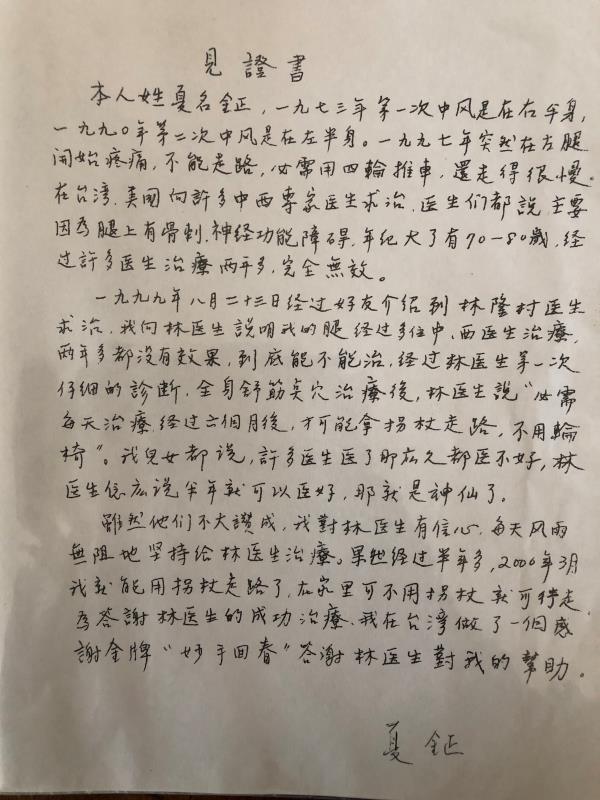 見證書
本人姓夏名鉦,一九七三年第一次中风是在右半身,
一九九〇年第二次中风是在左半身。一九九七年突然在右腿
開始疼痛,不能走路,必需用四輪推車,還走得很慢。
在台湾、美國向許多中西專家医生求治,医生们都說主要
因為腿上有骨刺、神经功能障碍,年纪大了有70-80歲,经
过許多医生治療兩年多,完全無效。
一九九九年八月二十三日经过好友介绍到林隆村医生
求治,我向林医生説明我的腿经过多位中、西医生治療,
兩年多都没有效果,到底能不能治,经过林医生第一次
仔细的診断,全身舒筋点穴治療後,林医生說“必需
每天治療,经过六個月後,才可能拿拐杖走路,不用輪
椅”。我兒女都说,許多医生医了那広久都医不好,林
医生怎広说半年就可以医好,那就是神仙了。
雖然他们不大讚成,我對林医生有信心,每天风雨
無阻地坚持给林医生治療。果然经过半年多,2000年3月
我就能用拐杖走路了,在家里可不用拐杖就可行走
為答謝林医生的成功治療,我在台湾做了一個感
謝金牌“妙手回春”答谢林医生對我的幫助。
夏鉦